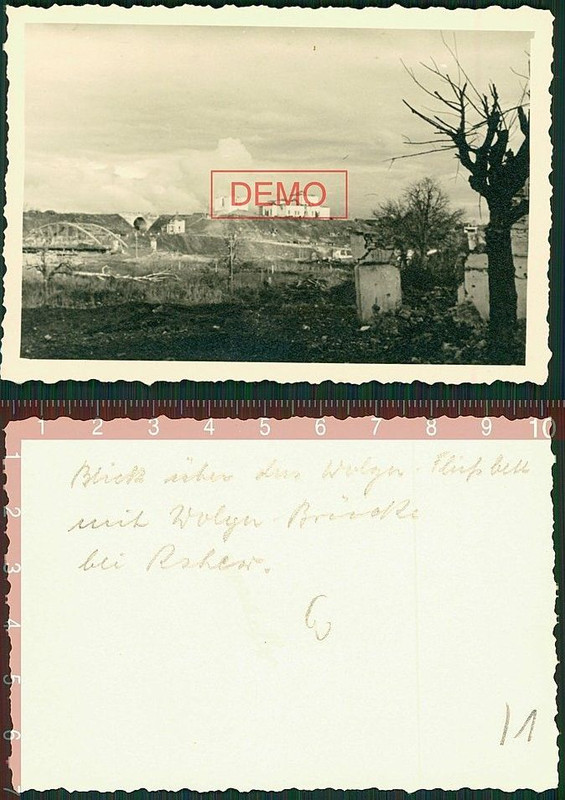 DEMO
1 2 3 4 5 6 7 8 9 10
1
2
3
4
5
6
7
Blick über das Wolga-Flußbett
mit Wolga Brücke
bei Rshew.
11